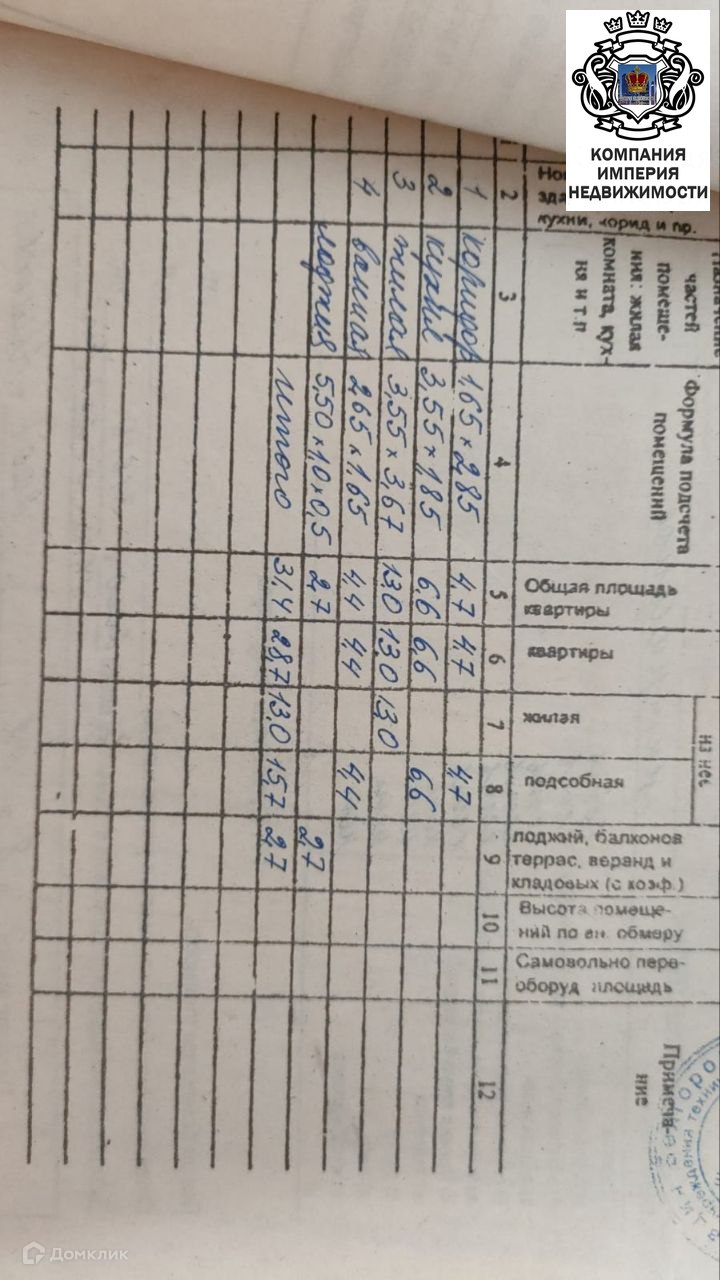 КОМПАНИЯ
ИМПЕРИЯ
НЕДВИЖИМОСТИ
кухни, корид и пр.
частей
помеще-
ния: жилая
комната, кух-
ня и т.п
Формула подсчета
помещений
Общая площадь
квартиры
из нее
квартиры
жилая
подсобная
лоджий, балконов
террас, веранд и
кладовых (с коэф.)
Высота помеще-
ний по вн. обмеру
Самовольно пере-
оборуд площадь
Примеча-
ние
2 3 4 5 6 7 8 9 10 11 12
1 коридор 1,65 x 2,85 4,7 4,7 4,7
2 кухня 3,55 x 1,85 6,6 6,6 6,6
3 жилая 3,55 x 3,67 13,0 13,0 13,0
4 ванная 2,65 x 1,65 4,4 4,4 4,4
лоджия 5,50 x 1,0 x 0,5 2,7 2,7
итого 31,4 28,7 13,0 15,7 2,7
Домклик